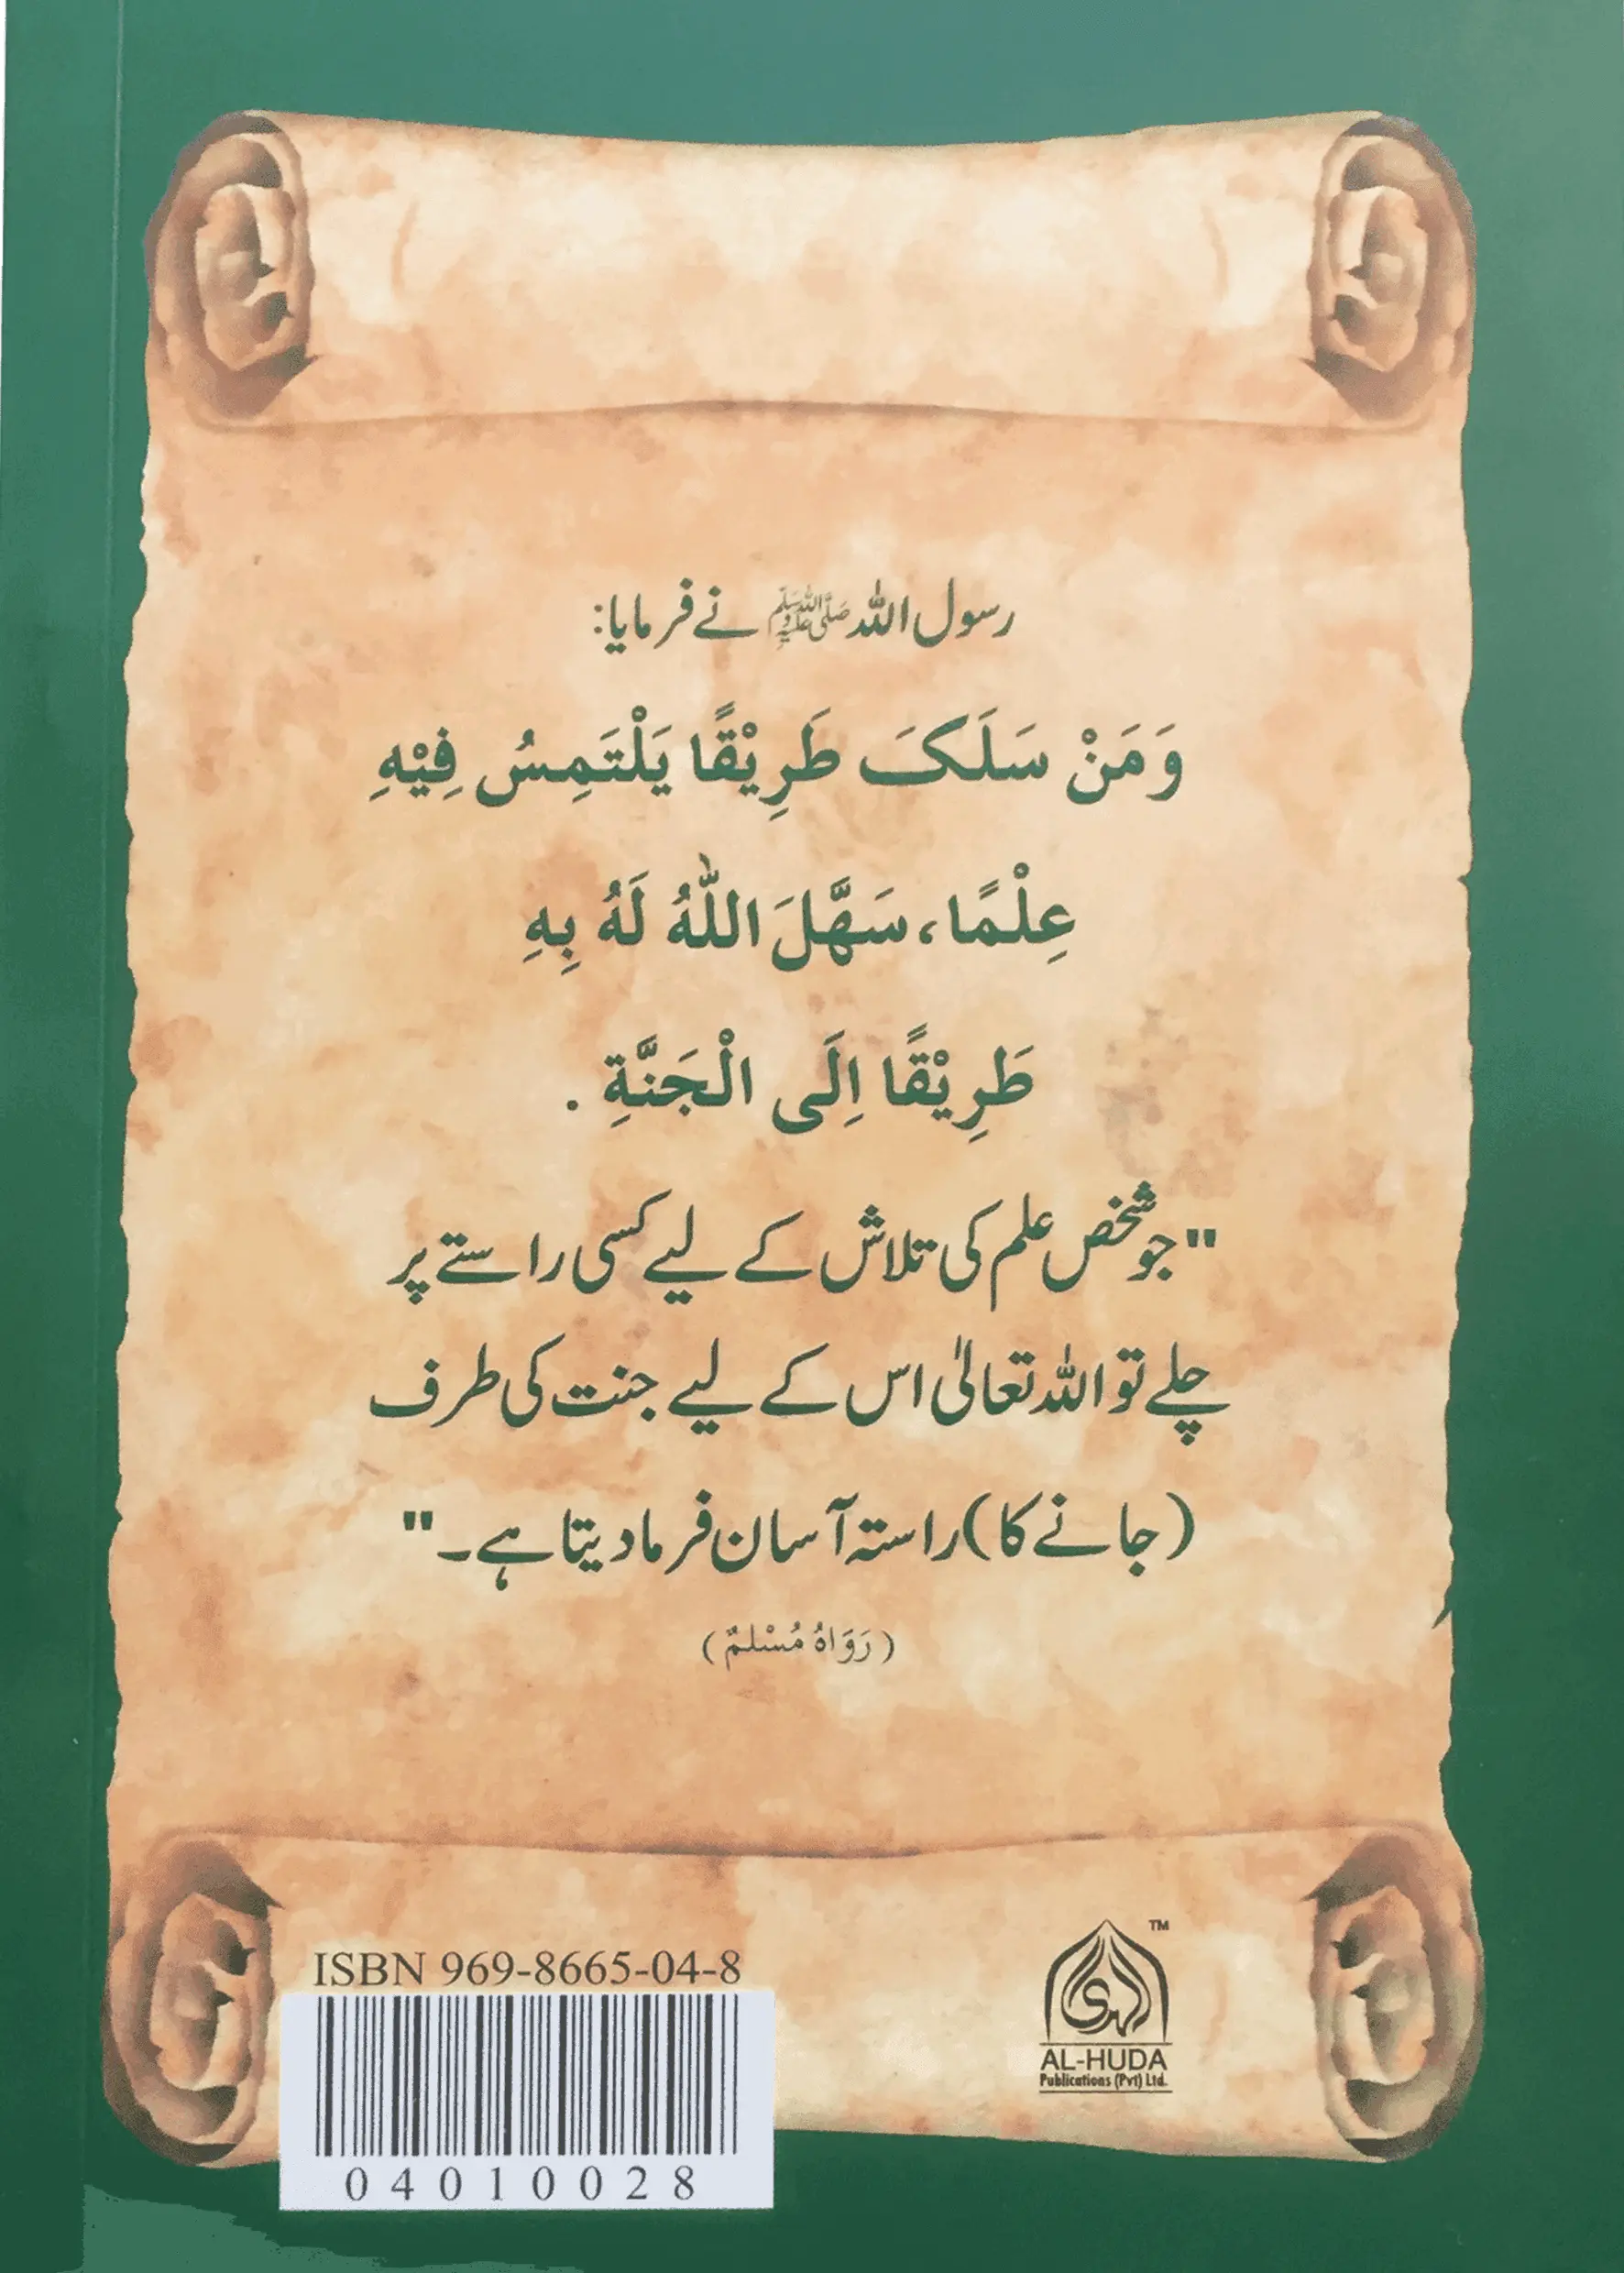 رسول اللہ ﷺ نے فرمایا:
وَمَنْ سَلَکَ طَرِیْقًا یَلْتَمِسُ فِیْهِ
عِلْمًا، سَهَّلَ اللّٰهُ لَهُ بِهِ
طَرِیْقًا اِلَی الْجَنَّةِ .
"جو شخص علم کی تلاش کے لیے کسی راستے پر
چلے تو اللہ تعالیٰ اس کے لیے جنت کی طرف
(جانے کا) راستہ آسان فرما دیتا ہے۔"
(رَوَاهُ مُسْلمٌ)
ISBN 969-8665-04-8
04010028
TM
الهدى
AL-HUDA
Publications (Pvt) Ltd.